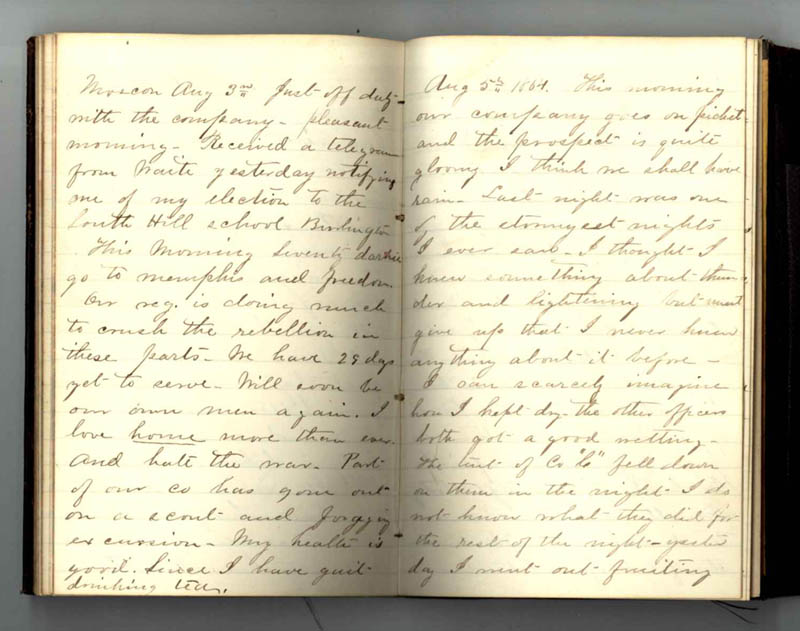 Moscow Aug 3rd Just off duty
with the company - pleasant
morning - Received a telegram
from Waite yesterday notifying
me of my election to the
South Hill school Burlington
This Morning Seventy darkie
go to memphis and freedom.
Our reg. is doing much
to crush the rebellion in
these parts - We have 29 days
yet to serve - Will soon be
our own men again. I
love home more than ever.
And hate the war - Part
of our co has gone out
on a scout and foraging
excursion - My health is
good. Since I have quit
drinking tea.
Aug 5th 1864. This morning
our company goes on picket
and the prospect is quite
gloomy I think we shall have
rain - Last night was one
of the stormyest nights
I ever saw - I thought I
knew something about thun-
der and lightening but must
give up that I never knew
anything about it before -
I can scarcely imagine
how I kept dry - the other officers
both got a good wetting -
The tent of Co "G" fell down
on them in the night - I do
not know what they did for
the rest of the night - yester
day I went out fruiting